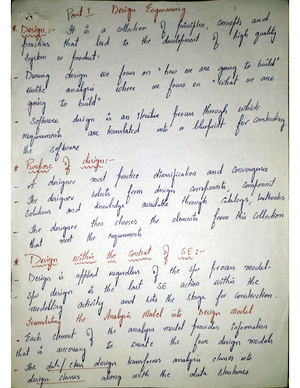 Part I Design Engineering
* Design:- It is a collection of principles, concepts and
practices that led to the development of high quality
system or product.
- During design we focus on "how we are going to build"
unlike analysis where we focus on "what we are
going to build"
- Software design is an iterative process through which
requirements are translated into a blueprint for constructing
the software
* Purpose of design:-
- A designer must practice diversification and convergence
- The designer selects from design components, component
solutions and knowledge available through catalogs, textbooks
- The designer then chooses the elements from this collection
that meet the requirements
* Design within the context of SE:-
- Design is applied regardless of the s/w process model.
- S/w design is the last SE action within the
modelling activity and sets the stage for construction.
Translating the Analysis Model into Design model
- Each element of the analysis model provides information
that is necessary to create the four design models
- The data/class design transforms analysis classes into
design classes along with the data structures